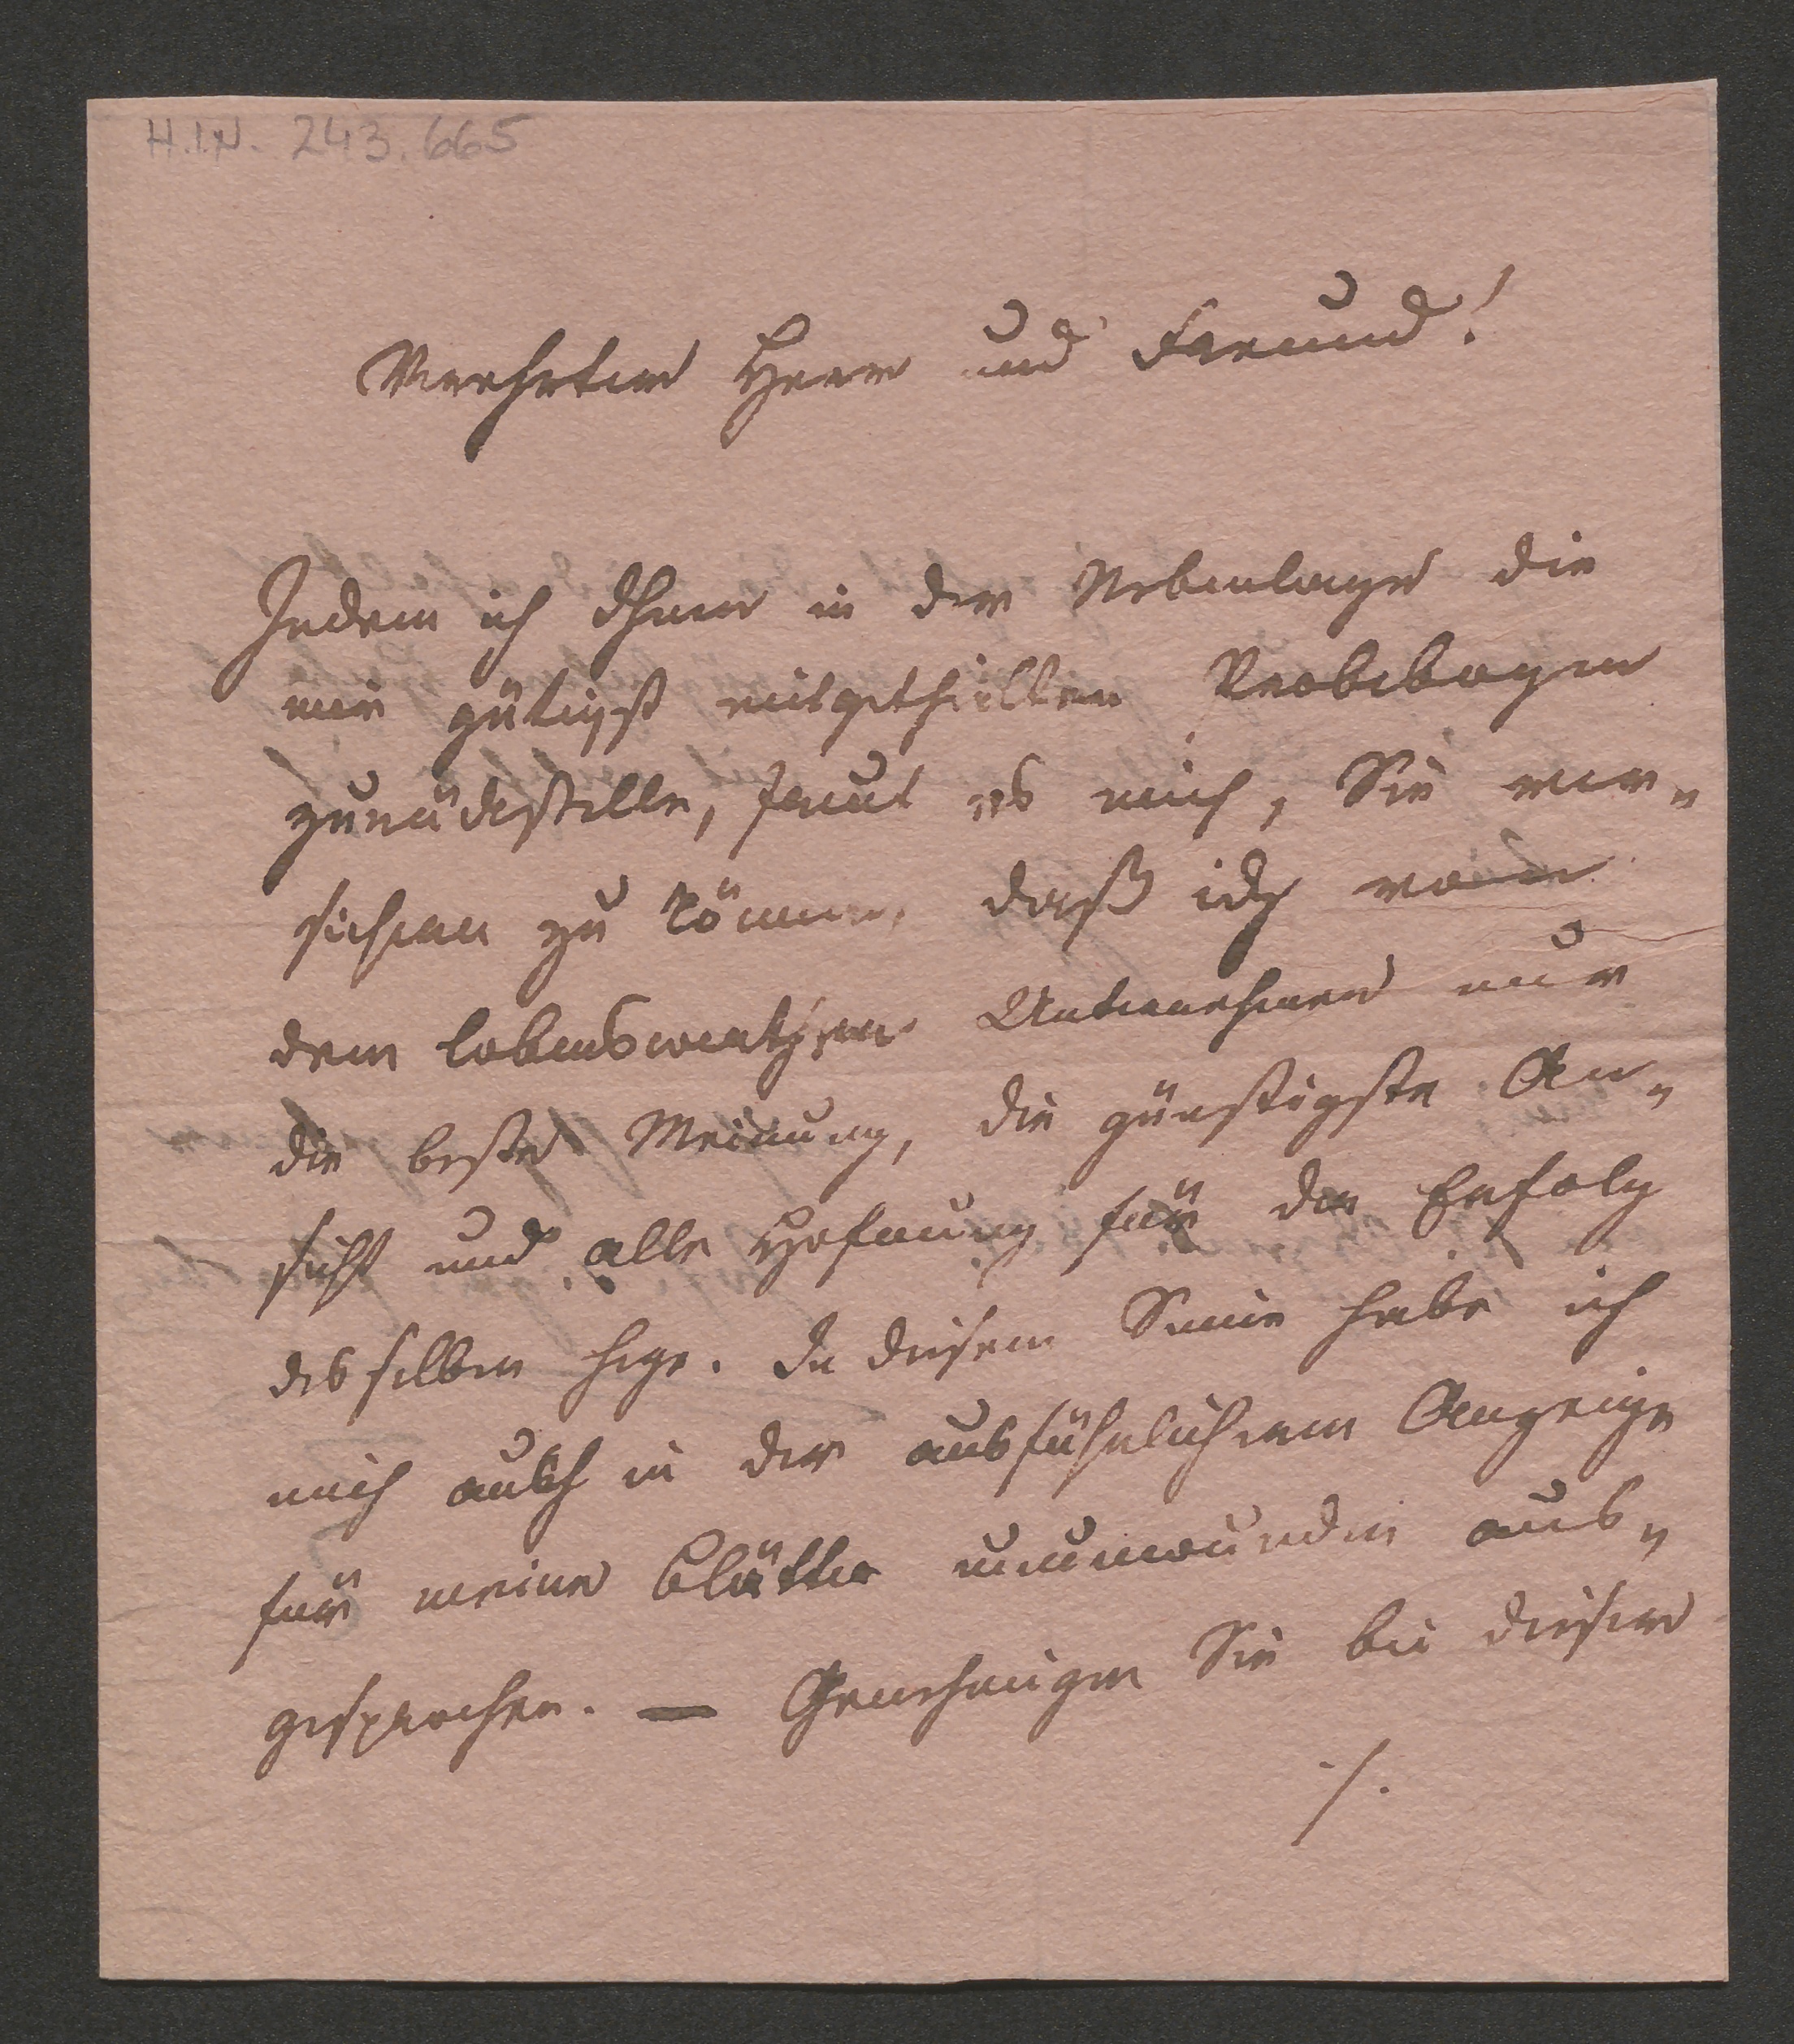 H.I.N. 243.665
Verehrter Herr und Freund!
Indem ich Ihnen in der Nebenlage die
mir gütigst mitgetheilten Probebogen
zurückstelle, freut es mich, Sie ver-
sichern zu können, daß ich von
dem lobenswerthen Unternehmen nur
die beste Meinung, die günstigste An-
sicht und alle Hofnung für den Erfolg
desselben hege. In diesem Sinne habe ich
mich auch in der ausführlichern Anzeige
für meine Blätter unumwunden aus-
gesprochen. — Genehmigen Sie bei dieser
./.